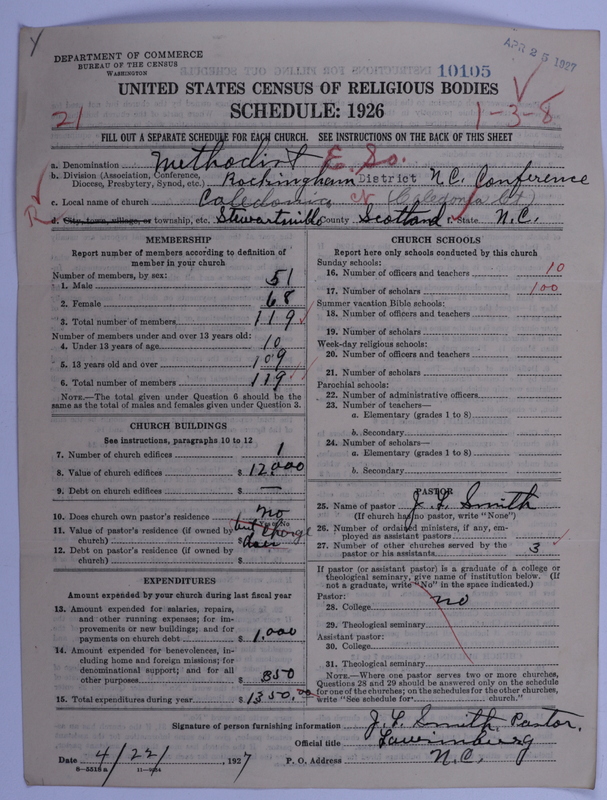 Y
APR 26 1927
DEPARTMENT OF COMMERCE
BUREAU OF THE CENSUS
WASHINGTON
10105
UNITED STATES CENSUS OF RELIGIOUS BODIES
21
SCHEDULE: 1926
1-3-8
FILL OUT A SEPARATE SCHEDULE FOR EACH CHURCH. SEE INSTRUCTIONS ON THE BACK OF THIS SHEET
a. Denomination Methodist E. So.
b. Division (Association, Conference, Diocese, Presbytery, Synod, etc.) Rockingham District N.C. Conference
c. Local name of church Caledonia (Caledonia Ct)
R
d. City, town, village, or township, etc. Stewartsville County Scotland f. State N.C.
MEMBERSHIP
Report number of members according to definition of
member in your church
Number of members, by sex:
1. Male 51
2. Female 68
3. Total number of members 119
Number of members under and over 13 years old:
4. Under 13 years of age 10
5. 13 years old and over 109
6. Total number of members 119
NOTE.—The total given under Question 6 should be
same as the total of males and females given under Question 3.
CHURCH BUILDINGS
See instructions, paragraphs 10 to 12
7. Number of church edifices 1
8. Value of church edifices $ 12,000
9. Debt on church edifices $ —
10. Does church own pastor's residence no
Yes or No
11. Value of pastor's residence (if owned by
church) $ but charge
does
12. Debt on pastor's residence (if owned by
church) $
EXPENDITURES
Amount expended by your church during last fiscal year
13. Amount expended for salaries, repairs,
and other running expenses; for im-
provements or new buildings; and for
payments on church debt $ 1,000
14. Amount expended for benevolences, in-
cluding home and foreign missions; for
denominational support; and for all
other purposes $ 350
15. Total expenditures during year $ 1350.00
CHURCH SCHOOLS
Report here only schools conducted by this church
Sunday schools:
16. Number of officers and teachers 10
17. Number of scholars 100
Summer vacation Bible schools:
18. Number of officers and teachers
19. Number of scholars
Week-day religious schools:
20. Number of officers and teachers
21. Number of scholars
Parochial schools:
22. Number of administrative officers
23. Number of teachers—
a. Elementary (grades 1 to 8)
b. Secondary
24. Number of scholars—
a. Elementary (grades 1 to 8)
b. Secondary
PASTOR
25. Name of pastor J. L. Smith
(If church has no pastor, write "None")
26. Number of ordained ministers, if any, em-
ployed as assistant pastors
27. Number of other churches served by the
pastor or his assistants 3
If pastor (or assistant pastor) is a graduate of a college or
theological seminary, give name of institution below. (If
not a graduate, write "No" in the space indicated.)
Pastor:
28. College no
29. Theological seminary
Assistant pastor:
30. College
31. Theological seminary
NOTE.—Where one pastor serves two or more churches,
Questions 28 and 29 should be answered only on the schedule
for one of the churches; on the schedules for the other churches,
write "See schedule for church."
Signature of person furnishing information J. L. Smith, Pastor.
Official title Laurinburg
Date 4/22/, 1927 P. O. Address N.C.
8-5518a 11-9184